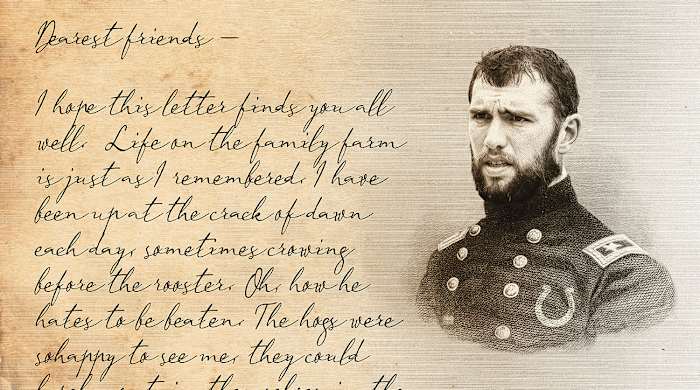 Dearest friends –
I hope this letter finds you all
well. Life on the family farm
is just as I remembered. I have
been up at the crack of dawn
each day, sometimes crowing
before the rooster. Oh, how he
hates to be beaten. The hogs were
so happy to see me, they could